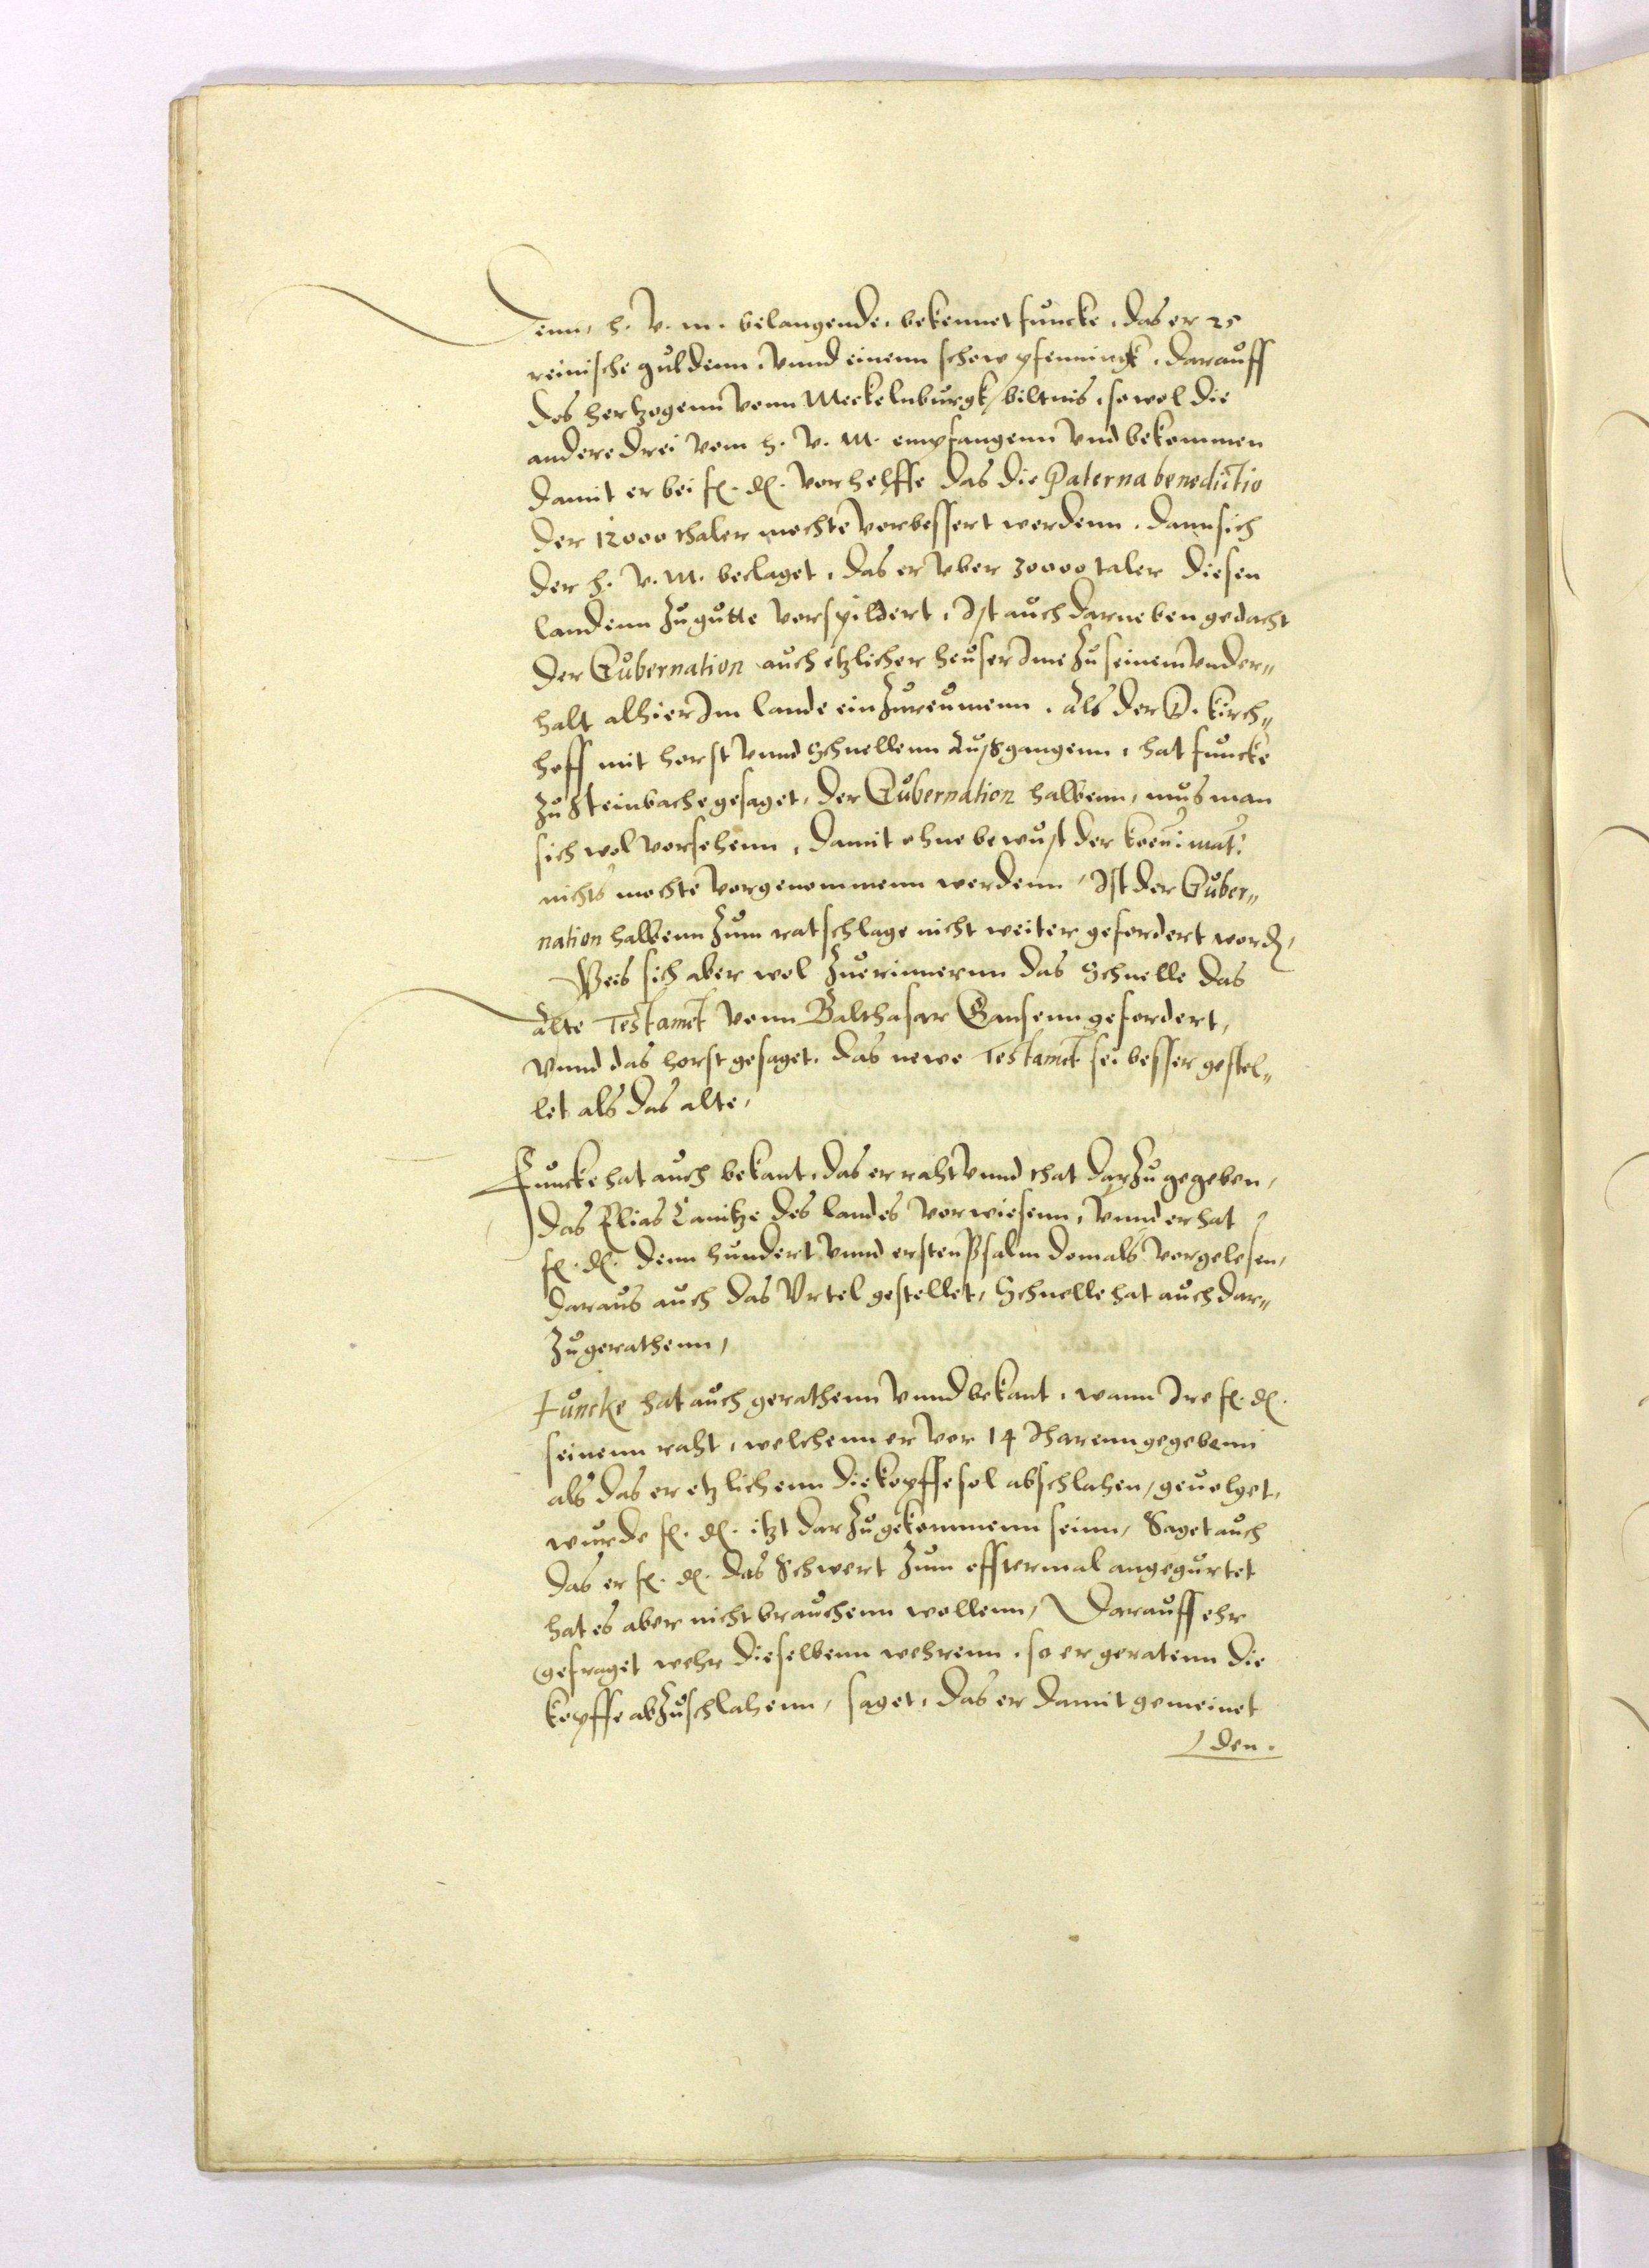 Denn, h. v. m. belangende, bekennet funcke, das er 25
reinische guldenn, vnnd einenn schow pfenningk, darauff
des hertzogenn vonn Meckelnburgk biltnis, sowol die
andere drei vom h. v. M. empfangenn vnd bekommen
damit er bei fr. dr. vorhelffe das die Paterna benedictio
der 12000 thaler mochte vorbessert werdenn. dann sich
der h. v. M. beclaget, das er vber 30000 taler diesen
landenn zu gutte vorspildert, Ist auch darneben gedacht
der Gubernation auch etzlicher heuser Ime zu seinem vnder„
halt alhier Im lande ein zureumenn. Als der D. kirch„
hoff mit horst vnnd Schnellenn Außgangenn, hat funcke
zu Steinbache gesaget, der Gubernation halbenn, mus man
sich wol vorsehenn, damit ohne bewust der koen: mat:
nichts mochte vorgenommenn werdenn, Ist der Guber„
nation halbenn zum ratschlage nicht weiter gefordert word,
Weis sich aber wol zuerinnernn das Schnelle das
alte Testamet vonn Balthasar Gansenn gefordert,
vnnd das horst gesaget, das newe Testamet sei besser gestel„
let als das alte,
Funcke hat auch bekant, das er raht vnnd that darzu gegeben,
das Elias Canitze des landes vorwiesenn, vnnd er hat
fr. dr. denn hundert vnnd ersten Psalm domals vorgelesen,
daraus auch das Vrtel gestellet, Schnelle hat auch dar„
zu gerathenn,
Funcke hat auch gerathenn vnnd bekant, wann Ire fr. dr.
seinenn raht, welchenn er vor 14 Iharenn gegebenn
als das er etzlichenn die kopffe sol abschlahen, geuolget,
wurde fr. dr. itzt darzu gekommenn seinn, Saget auch
das er fr. dr. das Schwert zum offtermal angegurtet
hat es aber nicht brauchenn wollenn, Darauff ehr
gefraget wehr dieselbenn wehrenn, so er geratenn die
kopffe abzuschlahenn, saget, das er damit gemeinet
den.